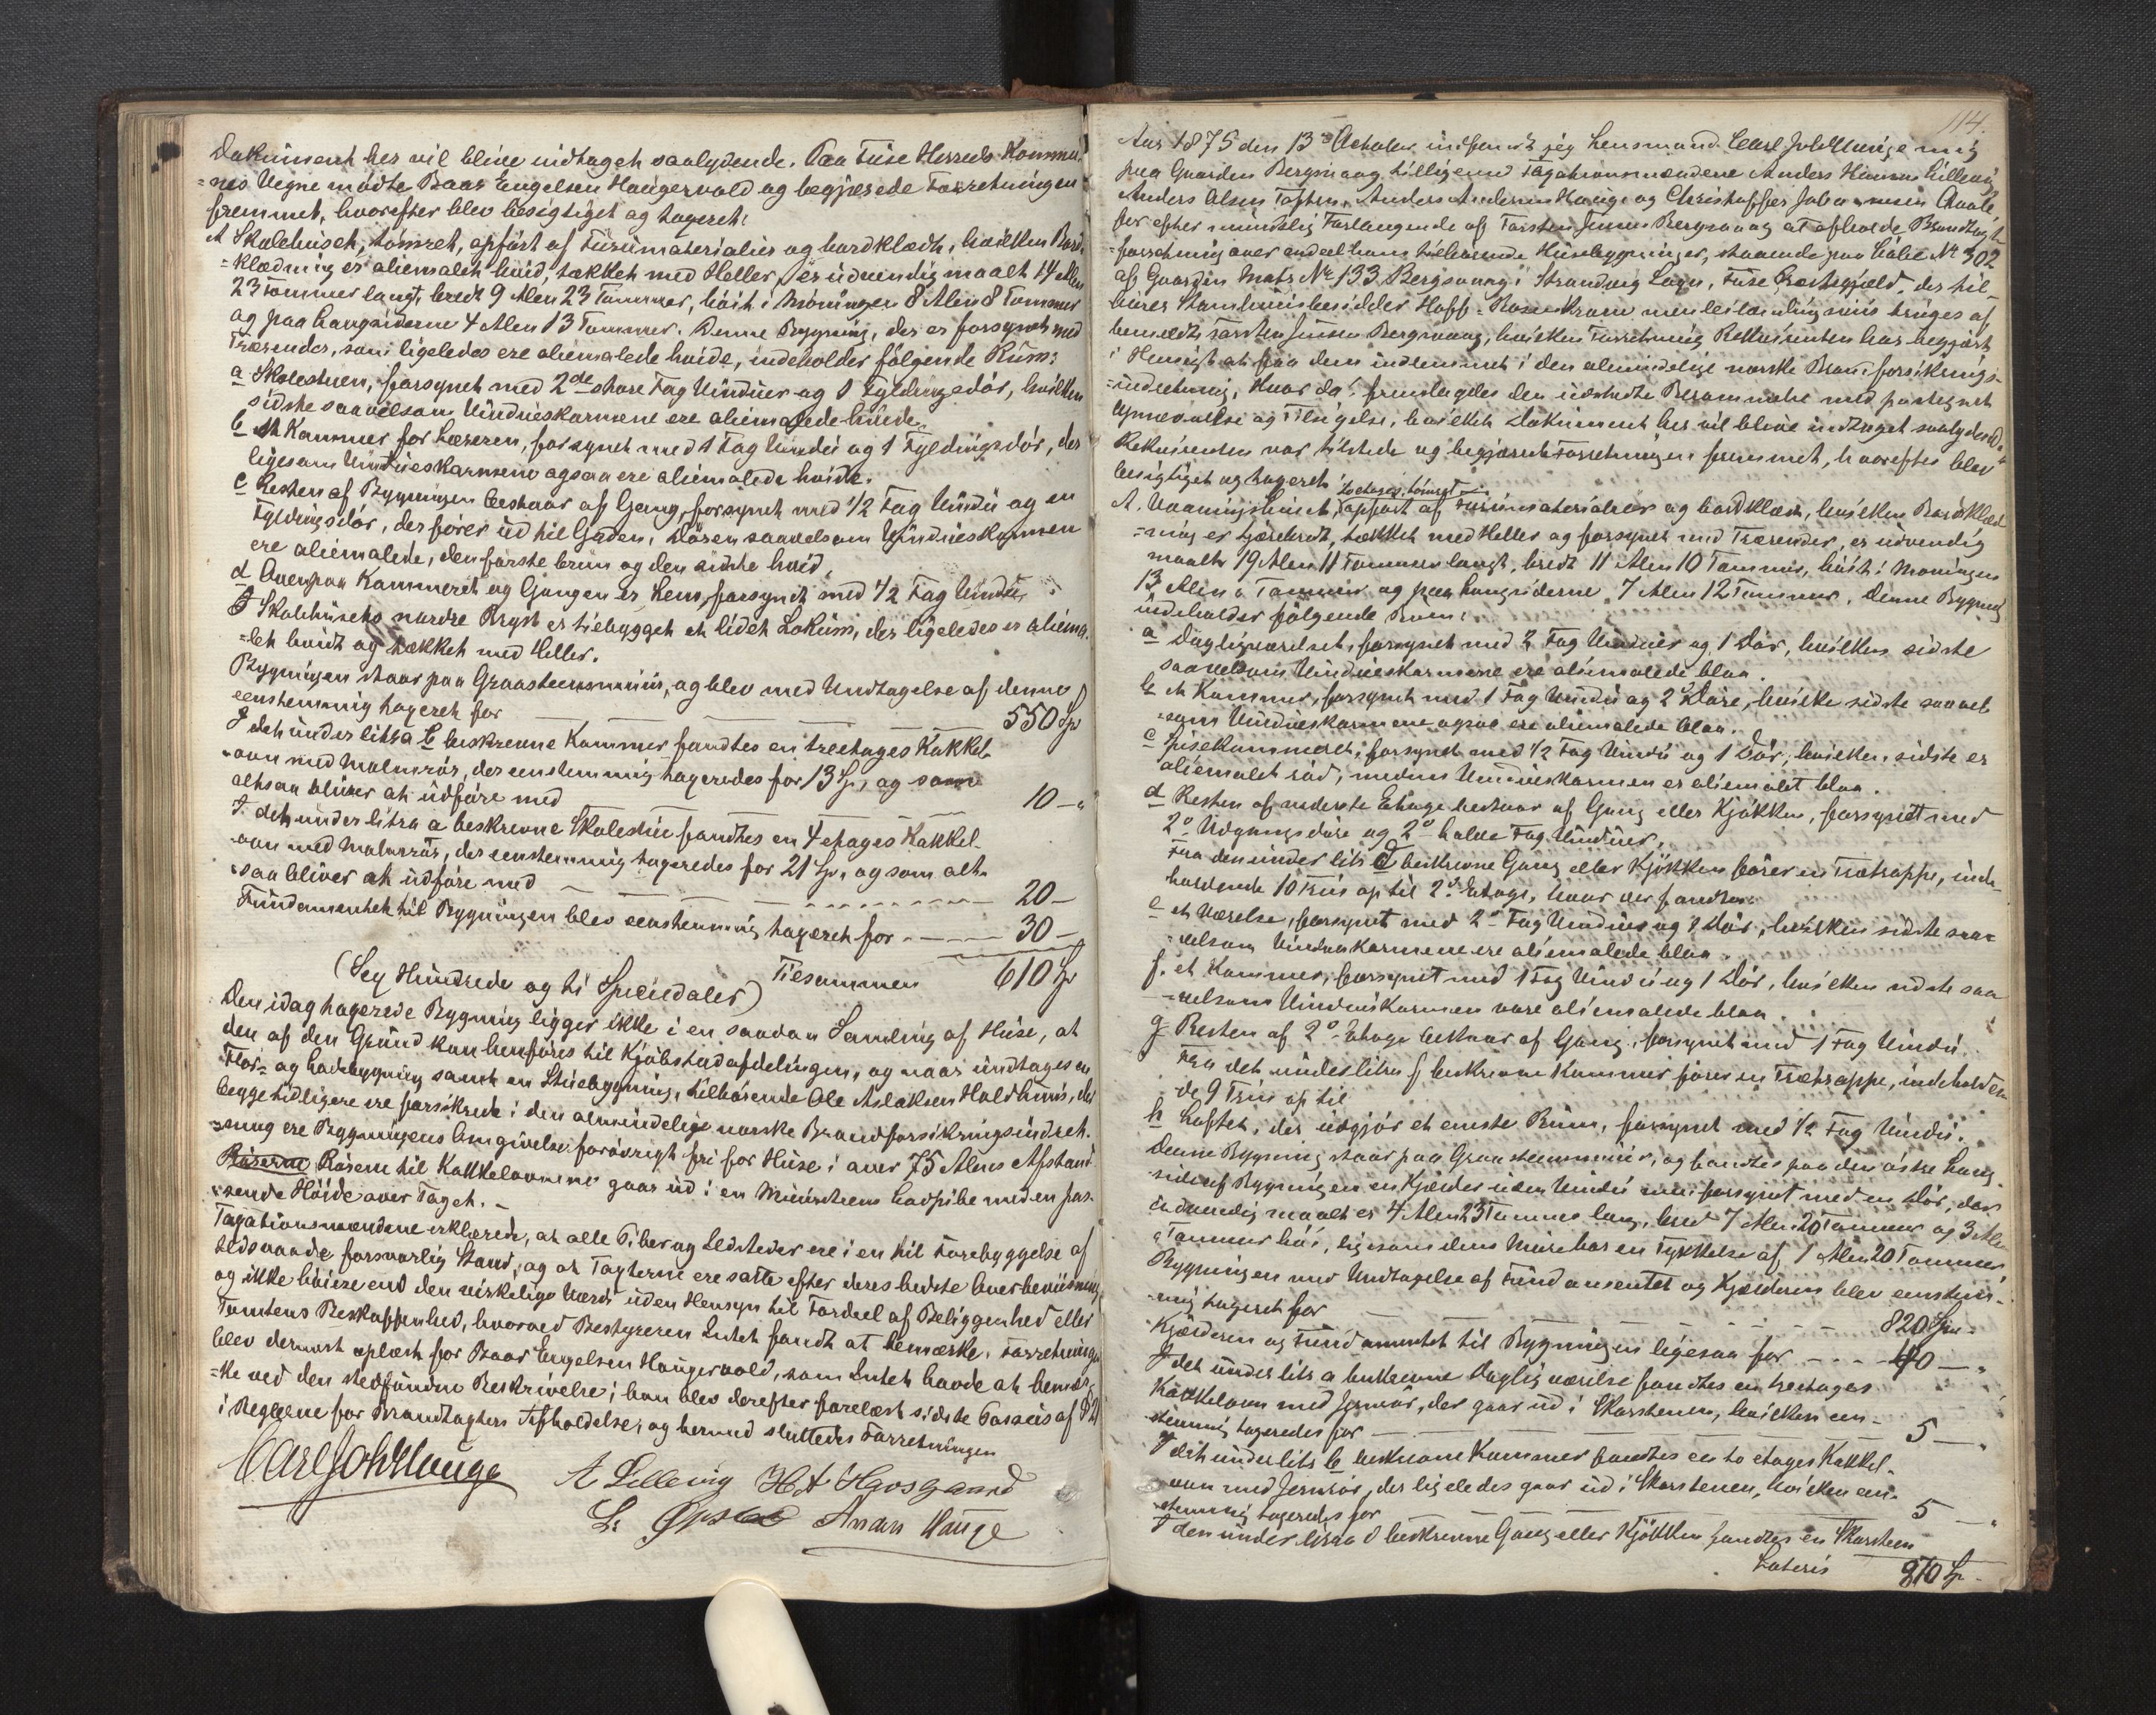 Dokument her vil blive indtaget saalydende. Paa Fuse Herreds Kommu-
=nes Vegne mödte Baar Engelsen Haugervold og begjærede Forretningen
fremmet, hvorefter blev besigtiget og taxeret:
A Skolehuset, tömret, opfört af Furumaterialier og bordklædt, hvilken Bord-
=klædning er oliemalet hvid, tækket med Heller, er udvendig maalt 14 Alen
23 Tommer langt, bredt 9 Alen 23 Tommer, höit i Möningen 8 Alen 8 Tommer
og paa Langsiderne 4 Alen 13 Tommer. Denne Bygning, der er forsynet med
Trærender, som ligeledes ere oliemalede hvide, indeholder fölgende Rum:
a Skolestuen, forsynet med 2de store Fag Vinduer og 1 Fyldingsdör, hvilken
sidste saavelsom Vindueskarmene ere oliemalede hvide.
b et Kammer for Læreren, forsynet med 1 Fag Vindu og 1 Fyldingsdör, der
ligesom Vindueskarmene ogsaa ere oliemalede hvide.
c Resten af Bygningen bestaar af Gang, forsynet med 1/2 Fag Vindu og en
Fyldingsdör, der förer ud til Gaden. Dören saavelsom Vindueskarmen
ere oliemalede, den förste brun og den sidste hvid.
d Ovenpaa Kammeret og Gangen er Lem, forsynet med 1/2 Fag Vindu.
I Skolehusets nordre Bryst er tilbygget et lidet Lokum, der ligeledes er oliema-
=let hvidt og tækket med Heller.
Bygningen staar paa Graasteensmuur, og blev med Undtagelse af denne
eenstemmig taxeret for 550 Sp
I det under litra b beskrevne Kammer fandtes en treetages Kakkel-
=ovn med Malmrör, der eenstemmig taxeredes for 13 Sp, og som
altsaa bliver at udföre med 10 – "
I det under litra a beskrevne Skolestue fandtes en 4 etages Kakkel-
=ovn med Malmrör, der eenstemmig taxeredes for 21 Sp, og som alt-
=saa bliver at udföre med 20 –
Fundamentet til Bygningen blev eenstemmig taxeret for 30 –
Tilsammen 610 Sp
(Sex Hundrede og ti Speciedaler)
Den idag taxerede Bygning ligger ikke i en saadan Samling af Huse, at
den af den Grund kan henföres til Kjöbstadafdelingen, og naar undtages en
Flor- og Ladebygning samt en Stuebygning, tilhörende Ole Aslaksen Holdhuus, der
begge tidligere ere forsikrede i den almindelige norske Brandforsikringsindret-
=ning ere Bygningens Omgivelse forövrigt fri for Huse i over 75 Alens Afstand.
Rörerne Rörene til Kakkelovnene gaar ud i en Muursteens Ladpibe med en pas-
=sende Höide over Taget. –
Taxationsmændene erklærede, at alle Piber og Ildsteder ere i en til Forebyggelse af
Ildsvaade forsvarlig Stand, og at Taxterne ere satte efter deres bedste Overbeviisning
og ikke höiere end den virkelige Værdi uden Hensyn til Fordeel af Beliggenhed eller
Tomtens Beskaffenhed, hvorved Bestyreren Intet fandt at bemærke. Forretningen
blev dernæst oplæst for Baar Engelsen Haugervold, som Intet havde at bemær-
=ke ved den stedfundne Beskrivelse; han blev derefter forelæst sidste Passus af § 21
i Reglerne for Brandtaxters Afholdelse, og hermed sluttedes Forretningen
Carl Joh Hauge
A Lillevig H A Havsgaard
L: Anders Hauge
114.
Aar 1875 den 13de October indfandt jeg Lensmand Carl Joh Hauge mig
paa Gaarden Bergsvaag tilligemed Taxationsmændene Anders Hansen Lillevig,
Anders Olsen Toften, Anders Andersen Hauge og Christoffer Johannesen Qvale,
for efter mundtlig Forlangende af Torsten Jensen Bergsvaag at afholde Brandtaxt-
=forretning over endeel ham tilhörende Huusbygninger, staaende paa Löbe No 302
af Gaarden Matr No 133 Bergsvaag i Strandvig Sogn, Fuse Præstegjæld, der til-
hörer Stamhuusbesidder Hoff-Rosenkrone men leilændingsviis bruges af
bemeldte Torsten Jensen Bergsvaag, hvilken Forretning Rekvirenten har begjært
i Hensigt at faa dem indlemmet i den almindelige norske Brandforsikrings-
=indretning. Hvor da: fremlagdes den udstedte Berammelse med paategnet
Opnævnelse og Tilsigelse, hvilket Dokument her vil blive indtaget saalydende.
Rekvirenten var tilstede og begjærede Forretningen fremmet, hvorefter blev
besigtiget og taxeret:
toetages, tömret
A. Vaaningshuset, opfört af Furumaterialier og bordklædt, hvilken Bordklæd-
=ning er tjærebredt, tækket med Heller og forsynet med Trærender, er udvendig
maalt 19 Alen 11 Tommer langt, bredt 11 Alen 10 Tommer, höit i Moningen
13 Alen " Tommer og paa Langsiderne 7 Alen 12 Tommer. Denne Bygning
indeholder fölgende Rum:
a Dagligværelset, forsynet med 3 Fag Vinduer og 1 Dör, hvilken sidste
saavelsom Vindueskarmene ere oliemalede blaa.
b et Kammer, forsynet med 1 Fag Vindu og 2de Döre, hvilke sidste saavel
=som Vindueskarmene ogsaa ere oliemalede blaa.
c Spisekammeret, forsynet med 1/2 Fag Vindu og 1 Dör, hvilken sidste er
oliemalet röd, medens Vindueskarmen er oliemalet blaa.
d Resten af nederste Etage bestaar af Gang eller Kjökken, forsynet med
2de Udgangsdöre og 2de halve Fag Vinduer.
Fra den under litr d beskrevne Gang eller Kjökken förer en Trætrappe, inde-
holdende 10 Trin op til 2den Etage, hvor der fandtes
e et Værelse, forsynet med 2de Fag Vinduer og 1 Dör, hvilken sidste saa-
=velsom Vindueskarmene ere oliemalede blaa.
f. et Kammer, forsynet med 1 Fag Vindu og 1 Dör, hvilken sidste saa
=velsom Vindueskarmen vare oliemalede blaa.
g Resten af 2den Etage bestaar af Gang, forsynet med 1 Fag Vindu.
Fra det under litra f beskrevne Kammer förer en Trætrappe, indeholden-
de 9 Trin op til
h Loftet, der udgjör et eneste Rum, forsynet med 1/2 Fag Vindu.
Denne Bygning staar paa Graasteensmuur, og fandtes paa den östre Lang-
side af Bygningen en Kjælder uden Vindu men forsynet med en Dör, der
indvendig maalt er 4 Alen 23 Tommer lang, bred 7 Alen 20 Tommer og 3 Alen
" Tommer höi, ligesom dens Mure har en Tykkelse af 1 Alen 20 Tommer
Bygningen med Undtagelse af Fundamentet og Kjælderen blev eenstem-
=mig taxeret for 820 Spd
Kjælderen og Fundamentet til Bygningen ligesaa for 40 – "
I det under litr a beskrevne Dagligværelse fandtes en treetages
Kakkelovn med Jernrör, der gaar ud i Skorstenen, hvilken een-
stemmig taxeredes for 5 – "
I det under litr b beskrevne Kammer fandtes en to etages Kakkel-
=ovn med Jernrör, der ligeledes gaar ud i Skorstenen, hvilken een-
stemmig taxeredes for 5 – "
I den under litra d beskrevne Gang eller Kjökken fandtes en Skorsteen
Lateris 870 Sp